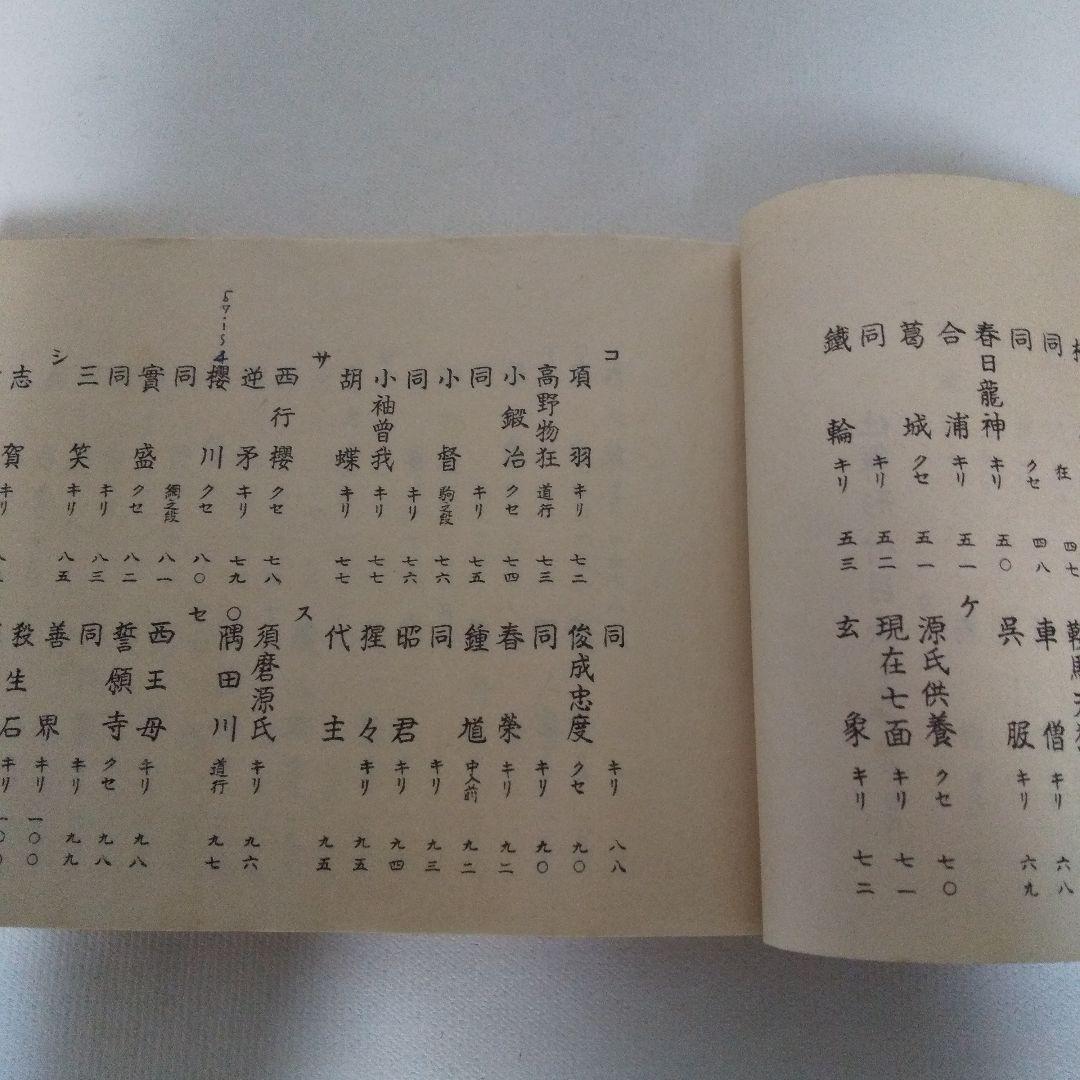 同 狂 四七
同 クセ 四八
春日龍神 キリ 五〇
合浦 キリ 五一
葛城 クセ 五一
同 キリ 五二
鐵輪 キリ 五三
車僧 キリ 六八
呉服 キリ 六九
ケ
源氏供養 クセ 七〇
現在七面 キリ 七一
玄象 キリ 七二
コ
項羽 キリ 七二
高野物狂 道行 七三
小鍛冶 クセ 七四
同 キリ 七五
小督 駒之段 七六
同 キリ 七六
小袖曽我 キリ 七七
胡蝶 キリ 七七
サ
西行櫻 クセ 七八
逆矛 キリ 七九
櫻川 クセ 八〇
同 網之段 八一
實盛 クセ 八二
同 キリ 八三
三笑 キリ 八五
シ
志賀 キリ
同 キリ 八八
俊成忠度 クセ 九〇
同 キリ 九〇
春榮 キリ 九二
鍾馗 中入前 九二
同 キリ 九三
昭君 キリ 九四
猩々 キリ 九五
代主 九五
ス
須磨源氏 キリ 九六
隅田川 道行 九七
セ
西王母 キリ 九八
誓願寺 クセ 九八
同 キリ 九九
善界 キリ 一〇〇
殺生石 キリ 一〇〇